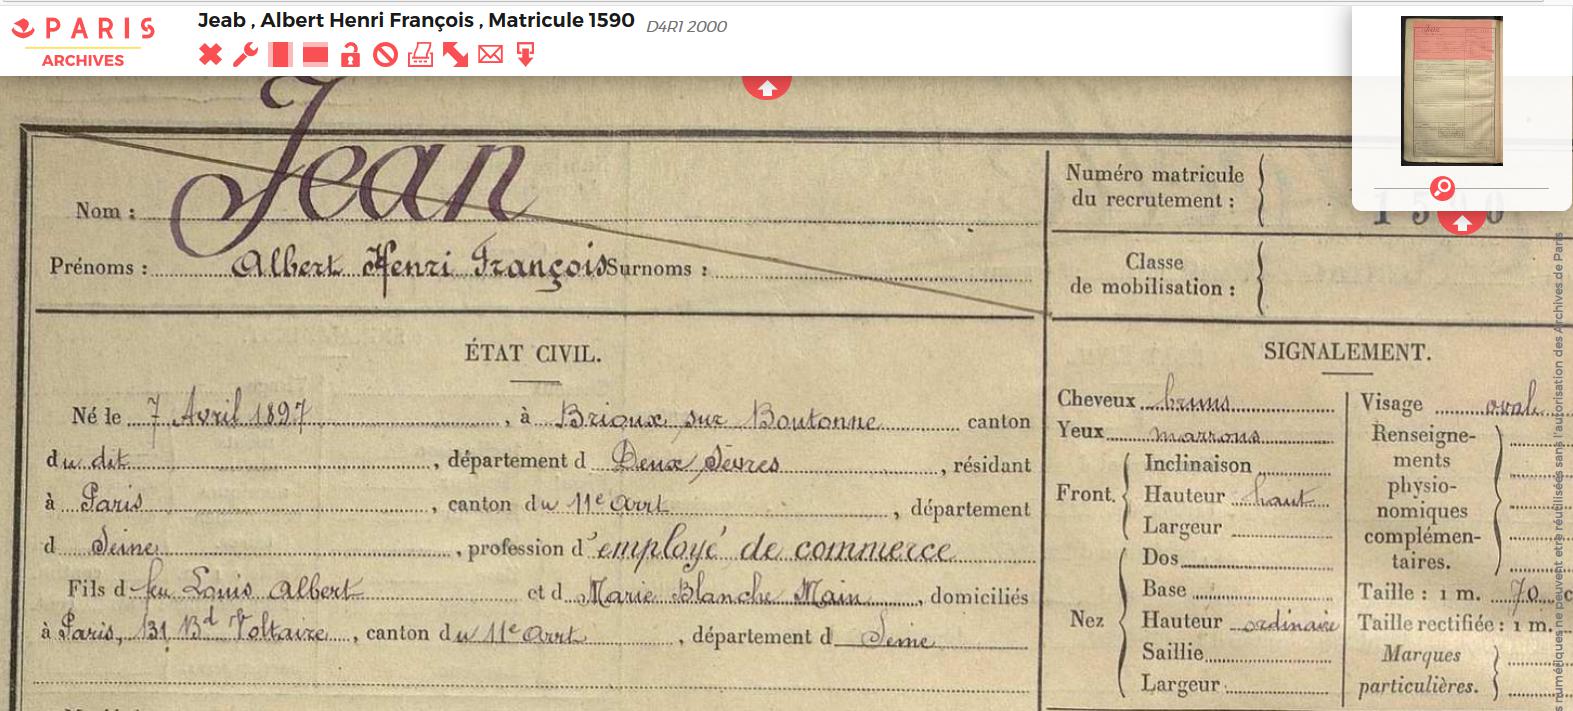 PARIS
ARCHIVES
Jeab , Albert Henri François , Matricule 1590 D4R1 2000
Jean
Nom :
Prénoms : Albert Henri François Surnoms :
Numéro matricule
du recrutement :
Classe
de mobilisation :
ÉTAT CIVIL.
Né le 7 Avril 1897, à Brioux sur Boutonne canton
du dit, département d Deux Sèvres, résidant
à Paris, canton du 11e Arrt, département
d Seine, profession d'employé de commerce
Fils d feu Louis Albert et d Marie Blanche Main, domiciliés
à Paris, 131 Bd Voltaire, canton du 11e Arrt, département d Seine
SIGNALEMENT.
Cheveux bruns
Yeux marrons
Front.
Inclinaison
Hauteur haut
Largeur
Nez
Dos
Base
Hauteur ordinaire
Saillie
Largeur
Visage oval
Renseigne-
ments
physio-
nomiques
complémen-
taires.
Taille : 1 m. 70 c
Taille rectifiée : 1 m.
Marques
particulières.
s numériques ne peuvent etre réutilisées sans l'autorisation des Archives de Paris